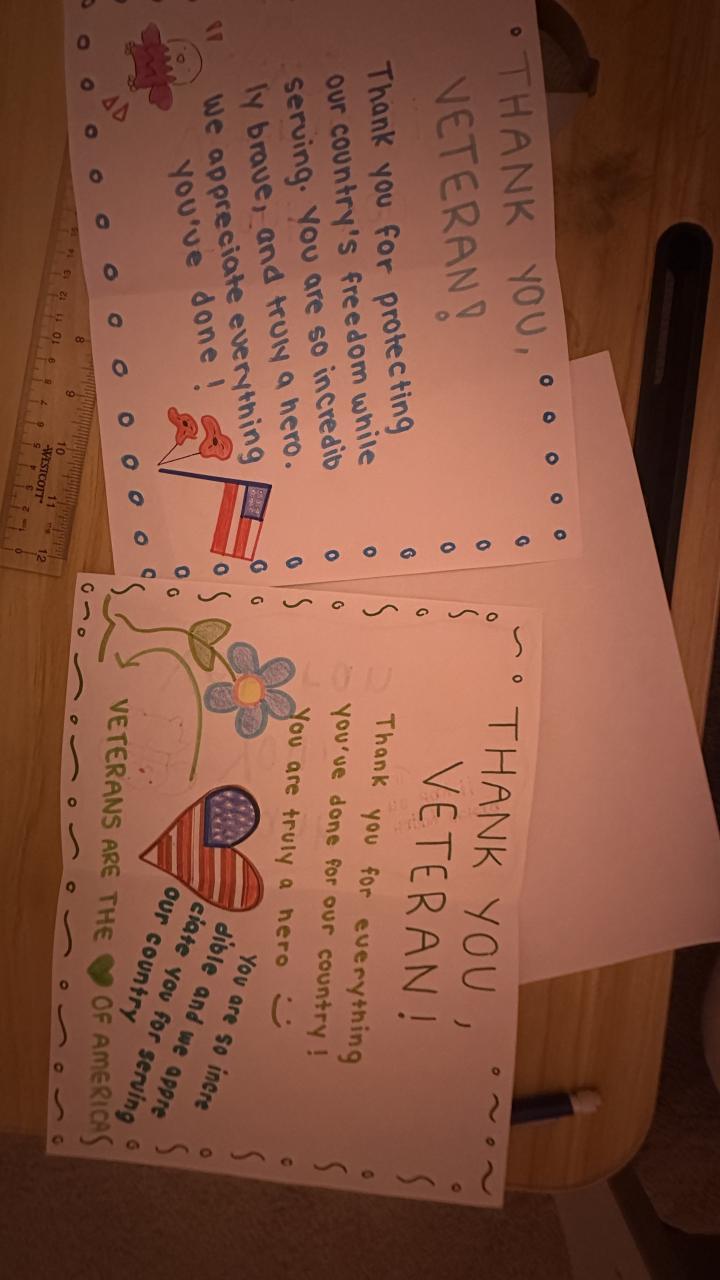 THANK YOU,
VETERAN!
Thank you for protecting
our country's freedom while
serving. You are so incredib
ly brave, and truly a hero.
We appreciate everything
you've done!
THANK YOU,
VETERAN!
Thank you for everything
you've done for our country!
You are truly a hero
You are so incre
dible and we appre
ciate you for serving
our country
VETERANS ARE THE ♥ OF AMERICA
WESTCOTT